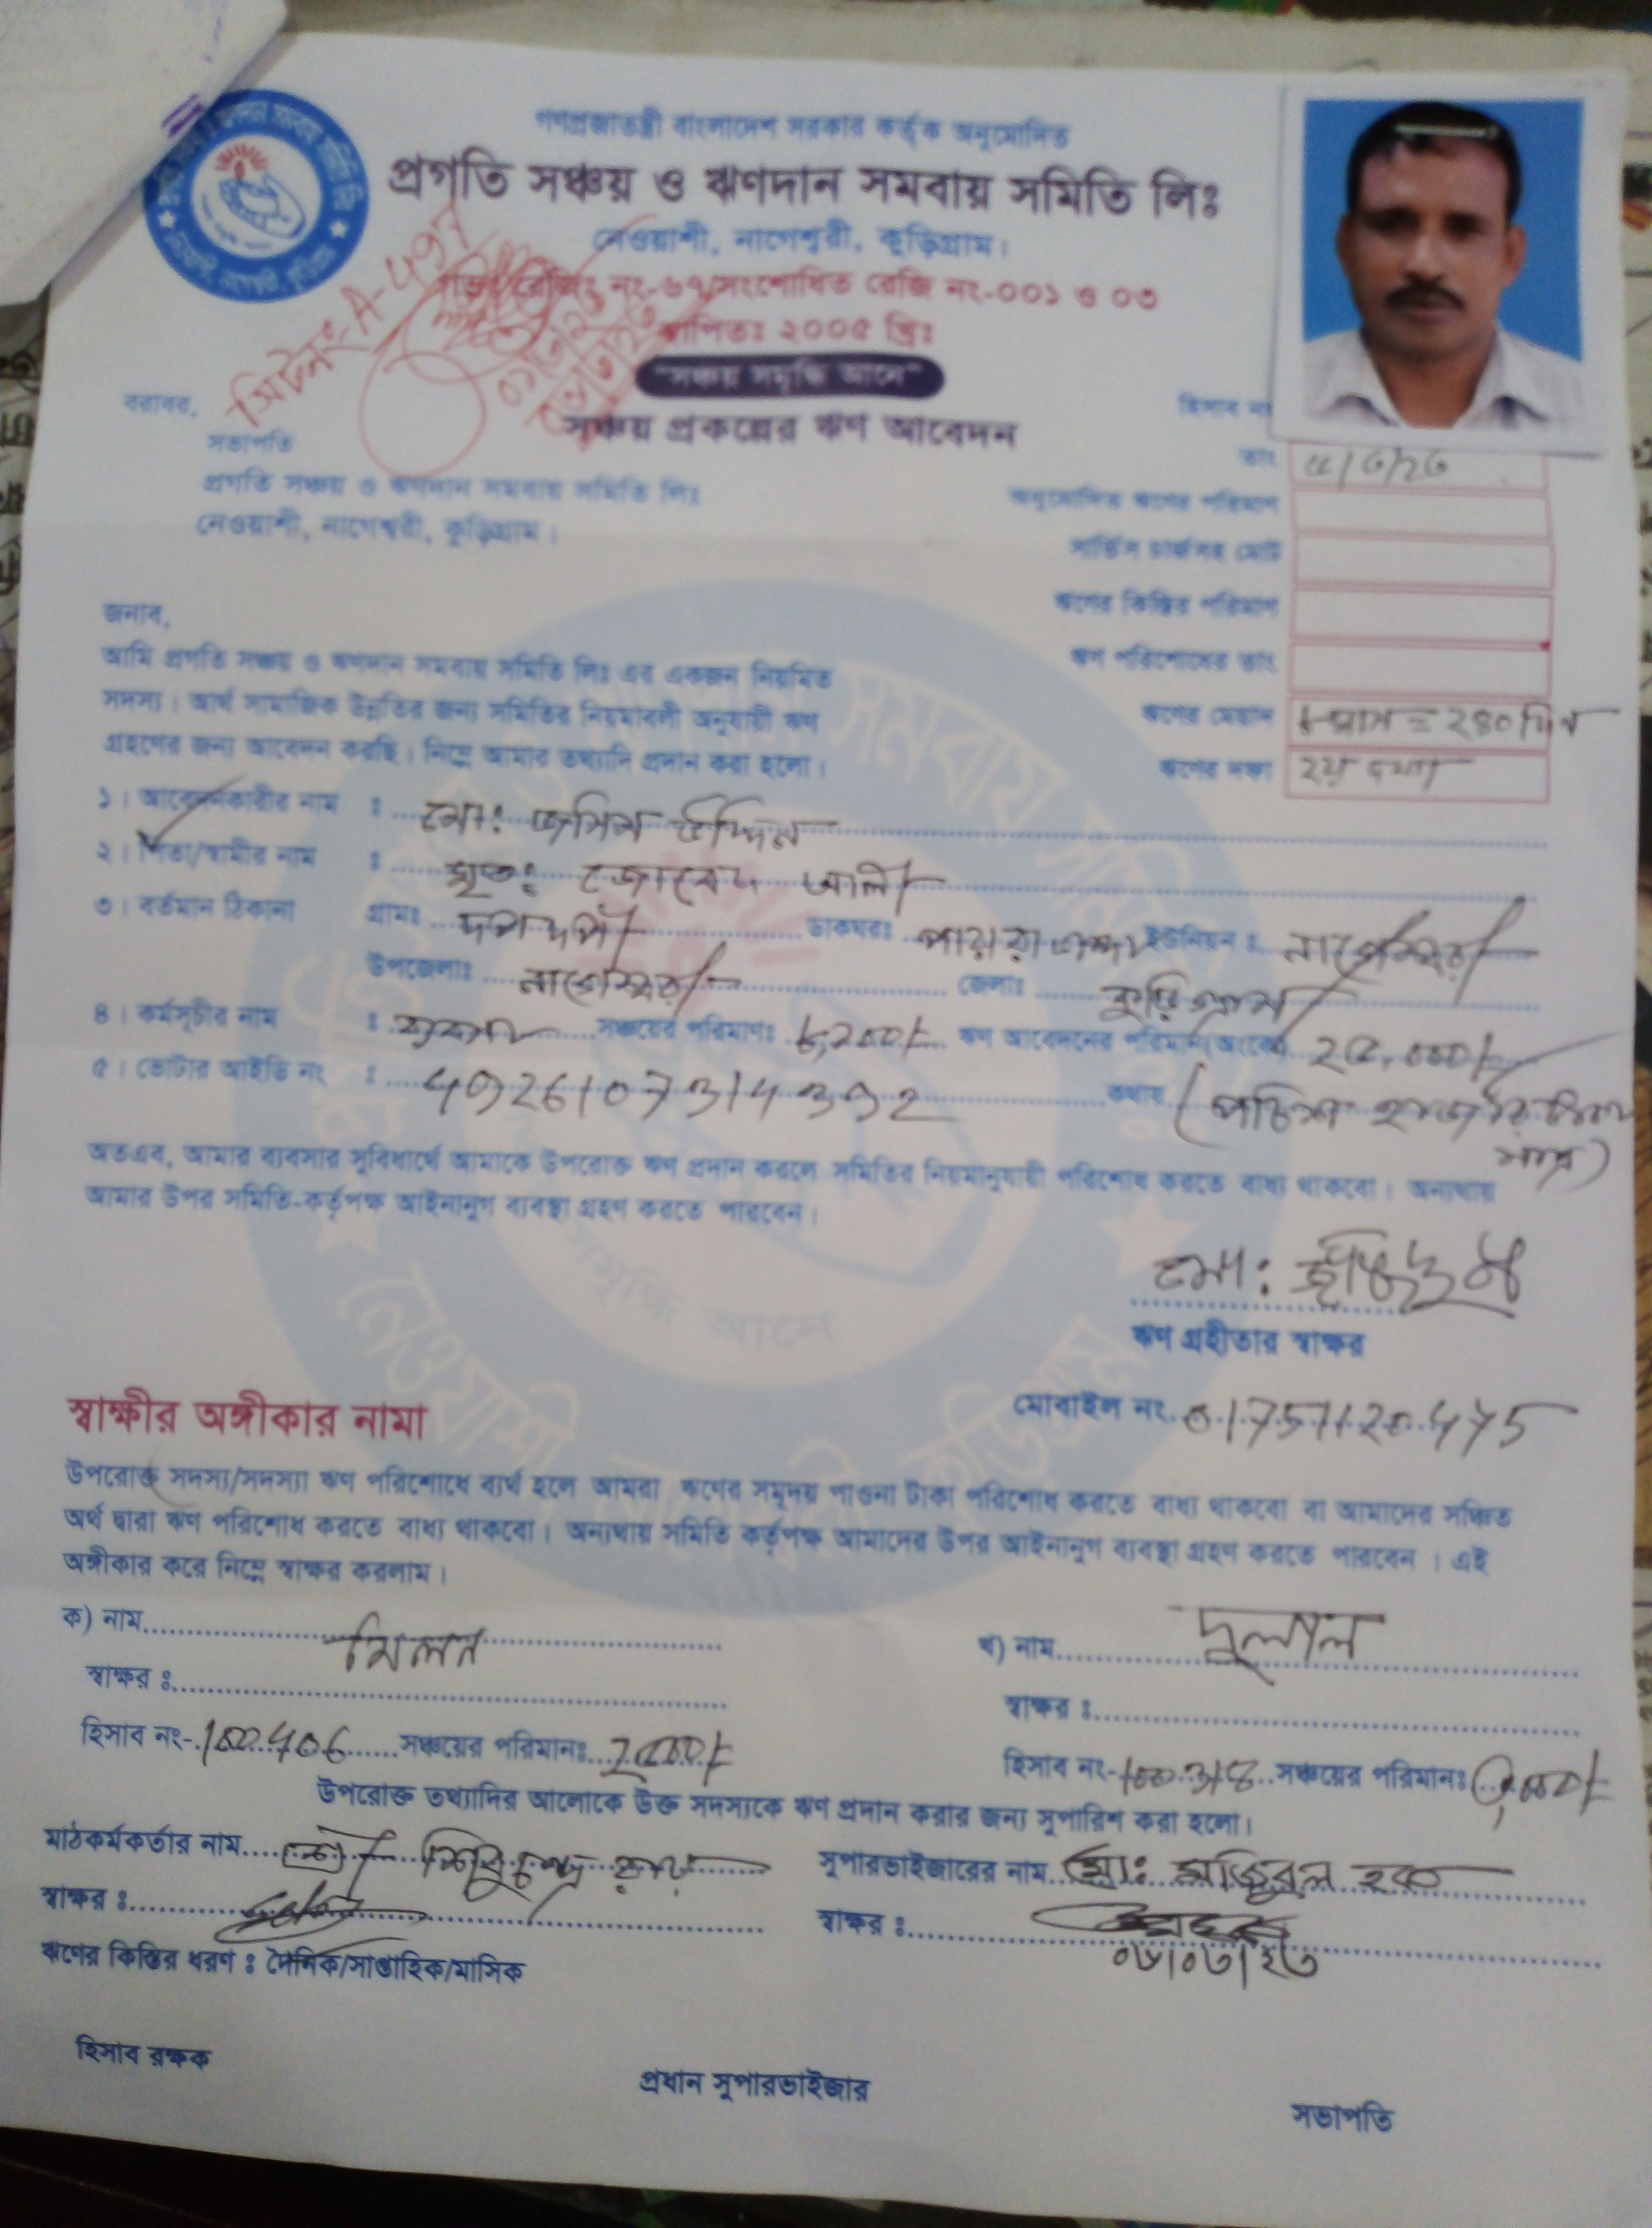 গণপ্রজাতন্ত্রী বাংলাদেশ সরকার কর্তৃক অনুমোদিত
প্রগতি সঞ্চয় ও ঋণদান সমবায় সমিতি লিঃ
নেওয়াশী, নাগেশ্বরী, কুড়িগ্রাম।
রেজিঃ নং-৬৭/সংশোধিত রেজি নং-০০১ ও ০৩
স্থাপিতঃ ২০০৫ খ্রিঃ
"সঞ্চয় সমৃদ্ধি আনে"
সঞ্চয় প্রকল্পের ঋণ আবেদন
হিসাব নং
বরাবর,
সভাপতি
প্রগতি সঞ্চয় ও ঋণদান সমবায় সমিতি লিঃ
নেওয়াশী, নাগেশ্বরী, কুড়িগ্রাম।
তাং
অনুমোদিত ঋণের পরিমাণ
সার্ভিস চার্জসহ মোট
ঋণের কিস্তির পরিমাণ
ঋণ পরিশোধের তাং
ঋণের মেয়াদ ৮ মাস = ২৪০ দিন
ঋণের দফা ২য় দফা
জনাব,
আমি প্রগতি সঞ্চয় ও ঋণদান সমবায় সমিতি লিঃ এর একজন নিয়মিত
সদস্য। আর্থ সামাজিক উন্নতির জন্য সমিতির নিয়মাবলী অনুযায়ী ঋণ
গ্রহণের জন্য আবেদন করছি। নিম্নে আমার তথ্যাদি প্রদান করা হলো।
১। আবেদনকারীর নাম : মো: জসিম উদ্দিন
২। পিতা/স্বামীর নাম : মৃত: জোবেদ আলী
৩। বর্তমান ঠিকানা গ্রামঃ ডাকঘরঃ পায়রাডাঙ্গা ইউনিয়ন : নাগেশ্বরী
উপজেলাঃ নাগেশ্বরী জেলাঃ কুড়িগ্রাম
৪। কর্মসূচীর নাম : ব্যবসা সঞ্চয়ের পরিমাণঃ ৮,২০০/- ঋণ আবেদনের পরিমাণ(অংকে) ২৫,০০০/-
৫। ভোটার আইডি নং : কথায় (পচিশ হাজার টাকা
মাত্র)
অতএব, আমার ব্যবসার সুবিধার্থে আমাকে উপরোক্ত ঋণ প্রদান করলে সমিতির নিয়মানুযায়ী পরিশোধ করতে বাধ্য থাকবো। অন্যথায়
আমার উপর সমিতি-কর্তৃপক্ষ আইনানুগ ব্যবস্থা গ্রহণ করতে পারবেন।
মো:
ঋণ গ্রহীতার স্বাক্ষর
স্বাক্ষীর অঙ্গীকার নামা
মোবাইল নং.
উপরোক্ত সদস্য/সদস্যা ঋণ পরিশোধে ব্যর্থ হলে আমরা ঋণের সমূদয় পাওনা টাকা পরিশোধ করতে বাধ্য থাকবো বা আমাদের সঞ্চিত
অর্থ দ্বারা ঋণ পরিশোধ করতে বাধ্য থাকবো। অন্যথায় সমিতি কর্তৃপক্ষ আমাদের উপর আইনানুগ ব্যবস্থা গ্রহণ করতে পারবেন । এই
অঙ্গীকার করে নিম্নে স্বাক্ষর করলাম।
ক) নাম মিলন
খ) নাম দুলাল
স্বাক্ষর ঃ
স্বাক্ষর ঃ
হিসাব নং- 100406 সঞ্চয়ের পরিমানঃ 2000/-
হিসাব নং- সঞ্চয়ের পরিমানঃ
উপরোক্ত তথ্যাদির আলোকে উক্ত সদস্যকে ঋণ প্রদান করার জন্য সুপারিশ করা হলো।
মাঠকর্মকর্তার নাম শ্রী
সুপারভাইজারের নাম মো: মজিবুল হক
স্বাক্ষর ঃ
স্বাক্ষর ঃ
ঋণের কিস্তির ধরণ ঃ দৈনিক/সাপ্তাহিক/মাসিক
হিসাব রক্ষক
প্রধান সুপারভাইজার
সভাপতি